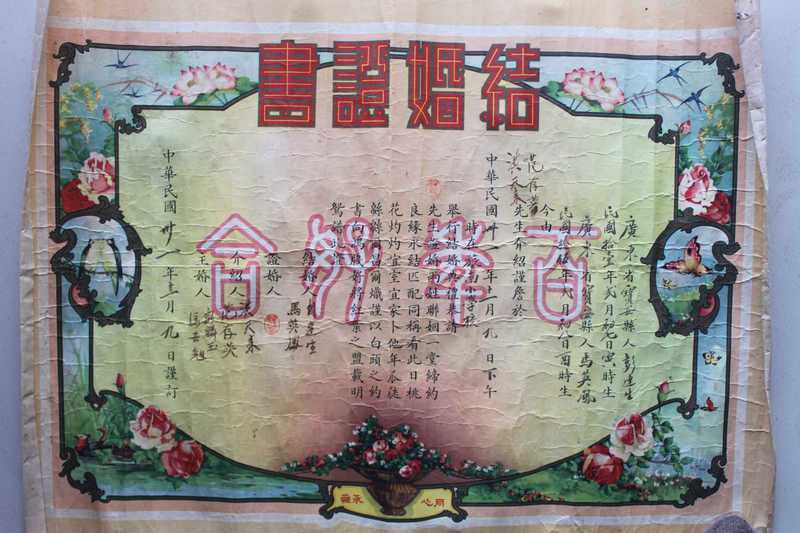 結婚證書
百年好合
廣東省寶安縣人彭達生
民國拾壹年貳月初日寅時生
廣東省寶安縣人馬英鳳
民國年貳月初日酉時生
今由
先生介紹謹詹於
中華民國卅一年三月九日下午
時在學校
舉行結婚典禮恭請
先生證婚兩姓聯姻一堂締約
良緣永結匹配同稱看此日桃
花灼灼宜室宜家卜他年瓜瓞
緜緜爾昌爾熾謹以白頭之約
書向鴻箋好將紅葉之盟載明
鴛譜此證
結婚人彭達生
馬英鳳
證婚人
介紹人
主婚人
中華民國卅一年三月九日謹訂
同心